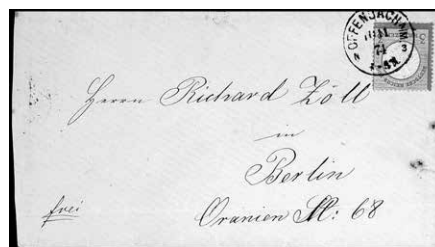 OFFENBACH A/M
Herrn Richard Zöll
in
Berlin
frei
Oranien St: 68